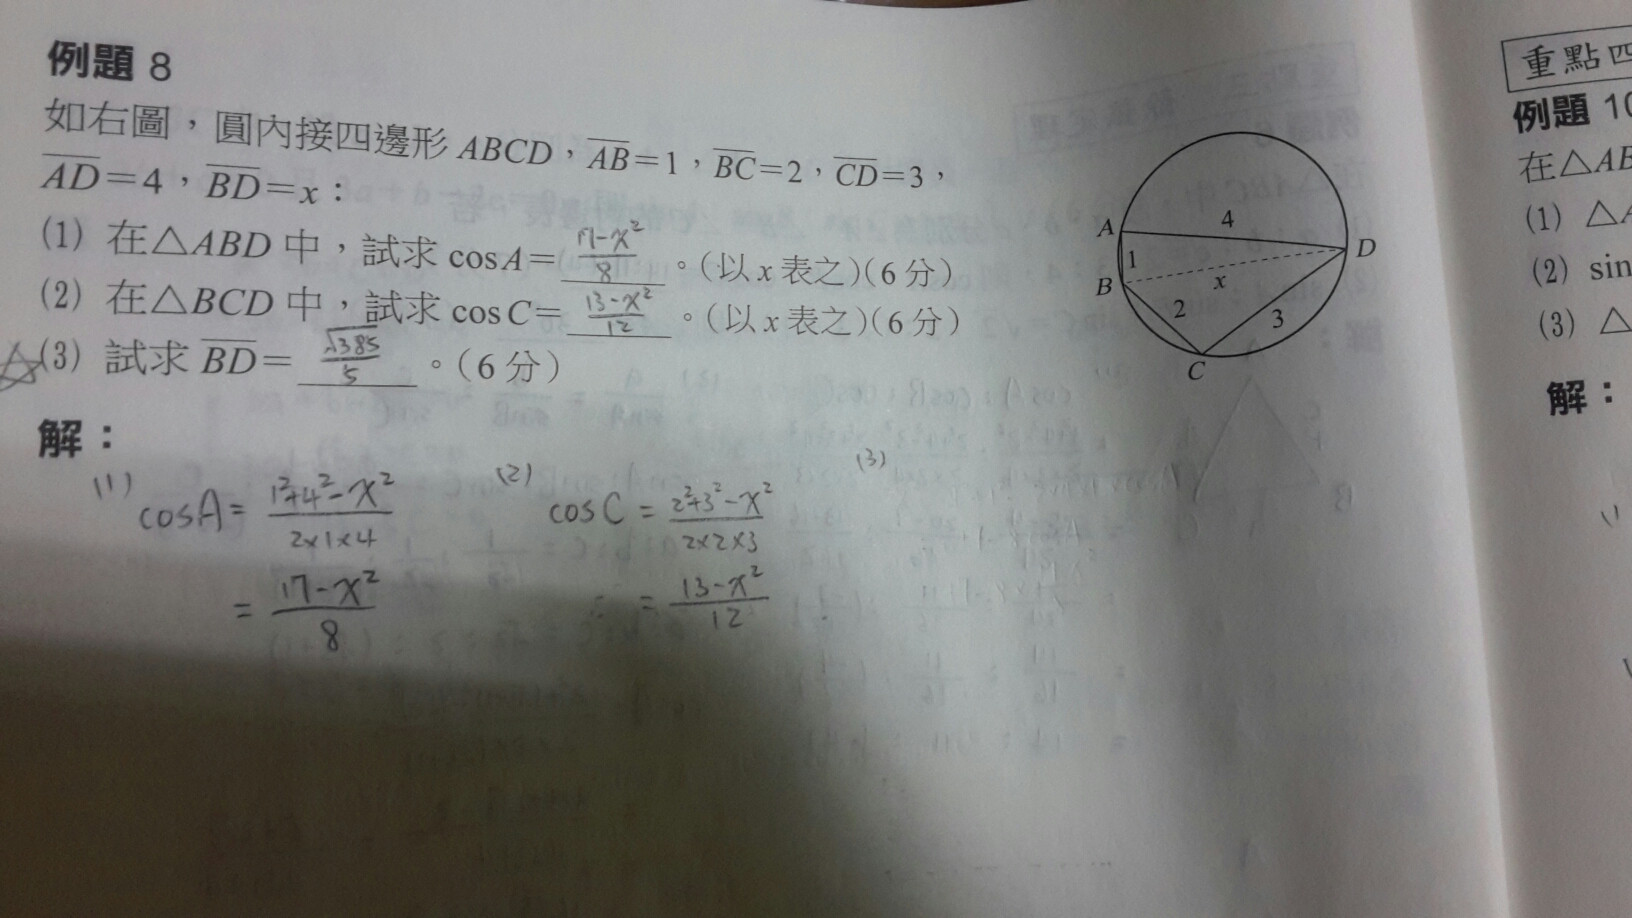 例題 8
如右圖，圓內接四邊形 ABCD，AB=1，BC=2，CD=3，
AD=4，BD=x：
(1) 在△ABD 中，試求 cosA= 17-x²/8 。(以 x 表之)(6 分)
(2) 在△BCD 中，試求 cosC= 13-x²/12 。(以 x 表之)(6 分)
☆(3) 試求 BD= √385/5 。(6 分)
A
4
D
1
B
x
2
3
C
解：
(1) cosA= 1²+4²-x²/2×1×4
= 17-x²/8
(2) cosC = 2²+3²-x²/2×2×3
= 13-x²/12
(3)
重點四
例題 10
在△AB
(1) △
(2) sin
(3) △
解：